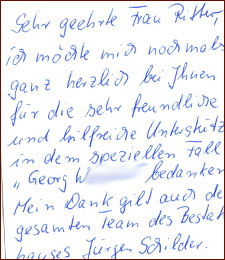 Sehr geehrte Frau Ritter,
ich möchte mich nochmals
ganz herzlich bei Ihnen
für die sehr freundliche
und hilfreiche Unterstütz
in dem speziellen Fall
„Georg W bedanken
Mein Dank gilt auch de
gesamten Team des Bestat
hauses Jürgen Schilder.